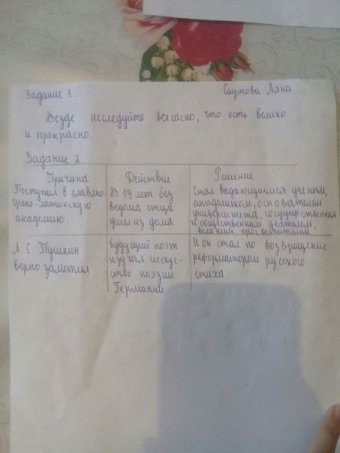 Задание 1. Саутова Ляна
Везде исследуйте всечасно, что есть велико
и прекрасно.
Задание 2.
Причина Действие Решение
Поступил в славяно В 19 лет без Стал выдающимся ученым
греко-латинскую ведома отца академиком, основателем
академию. ушел из дома университета, государственным
и общественным деятелем,
великим просветителем.
А. С. Пушкин Будущий поэт И он стал по возвращение
верно заметил изучал искус- реформатором русского
ство поэзии стиха.
Германии.